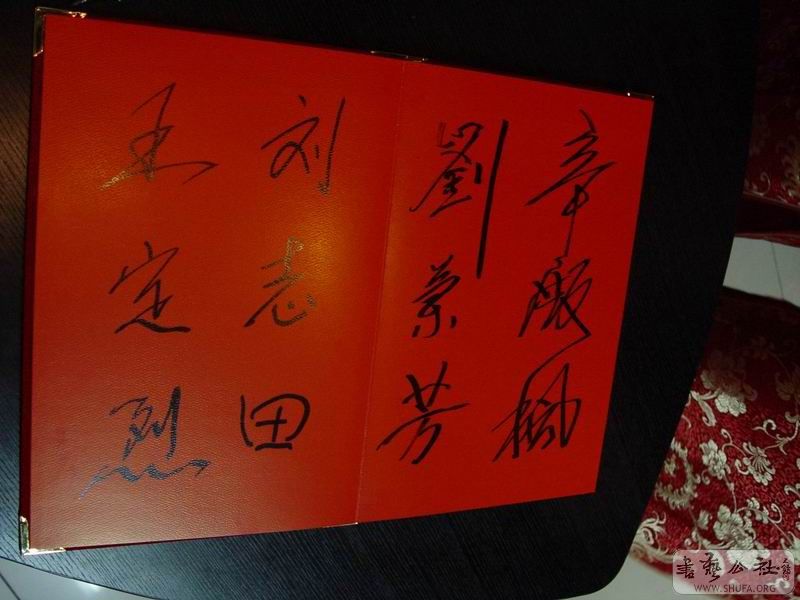 章殿楓
劉荣芳
刘志田
王定烈
書藝公社
WWW.SHUFA.ORG